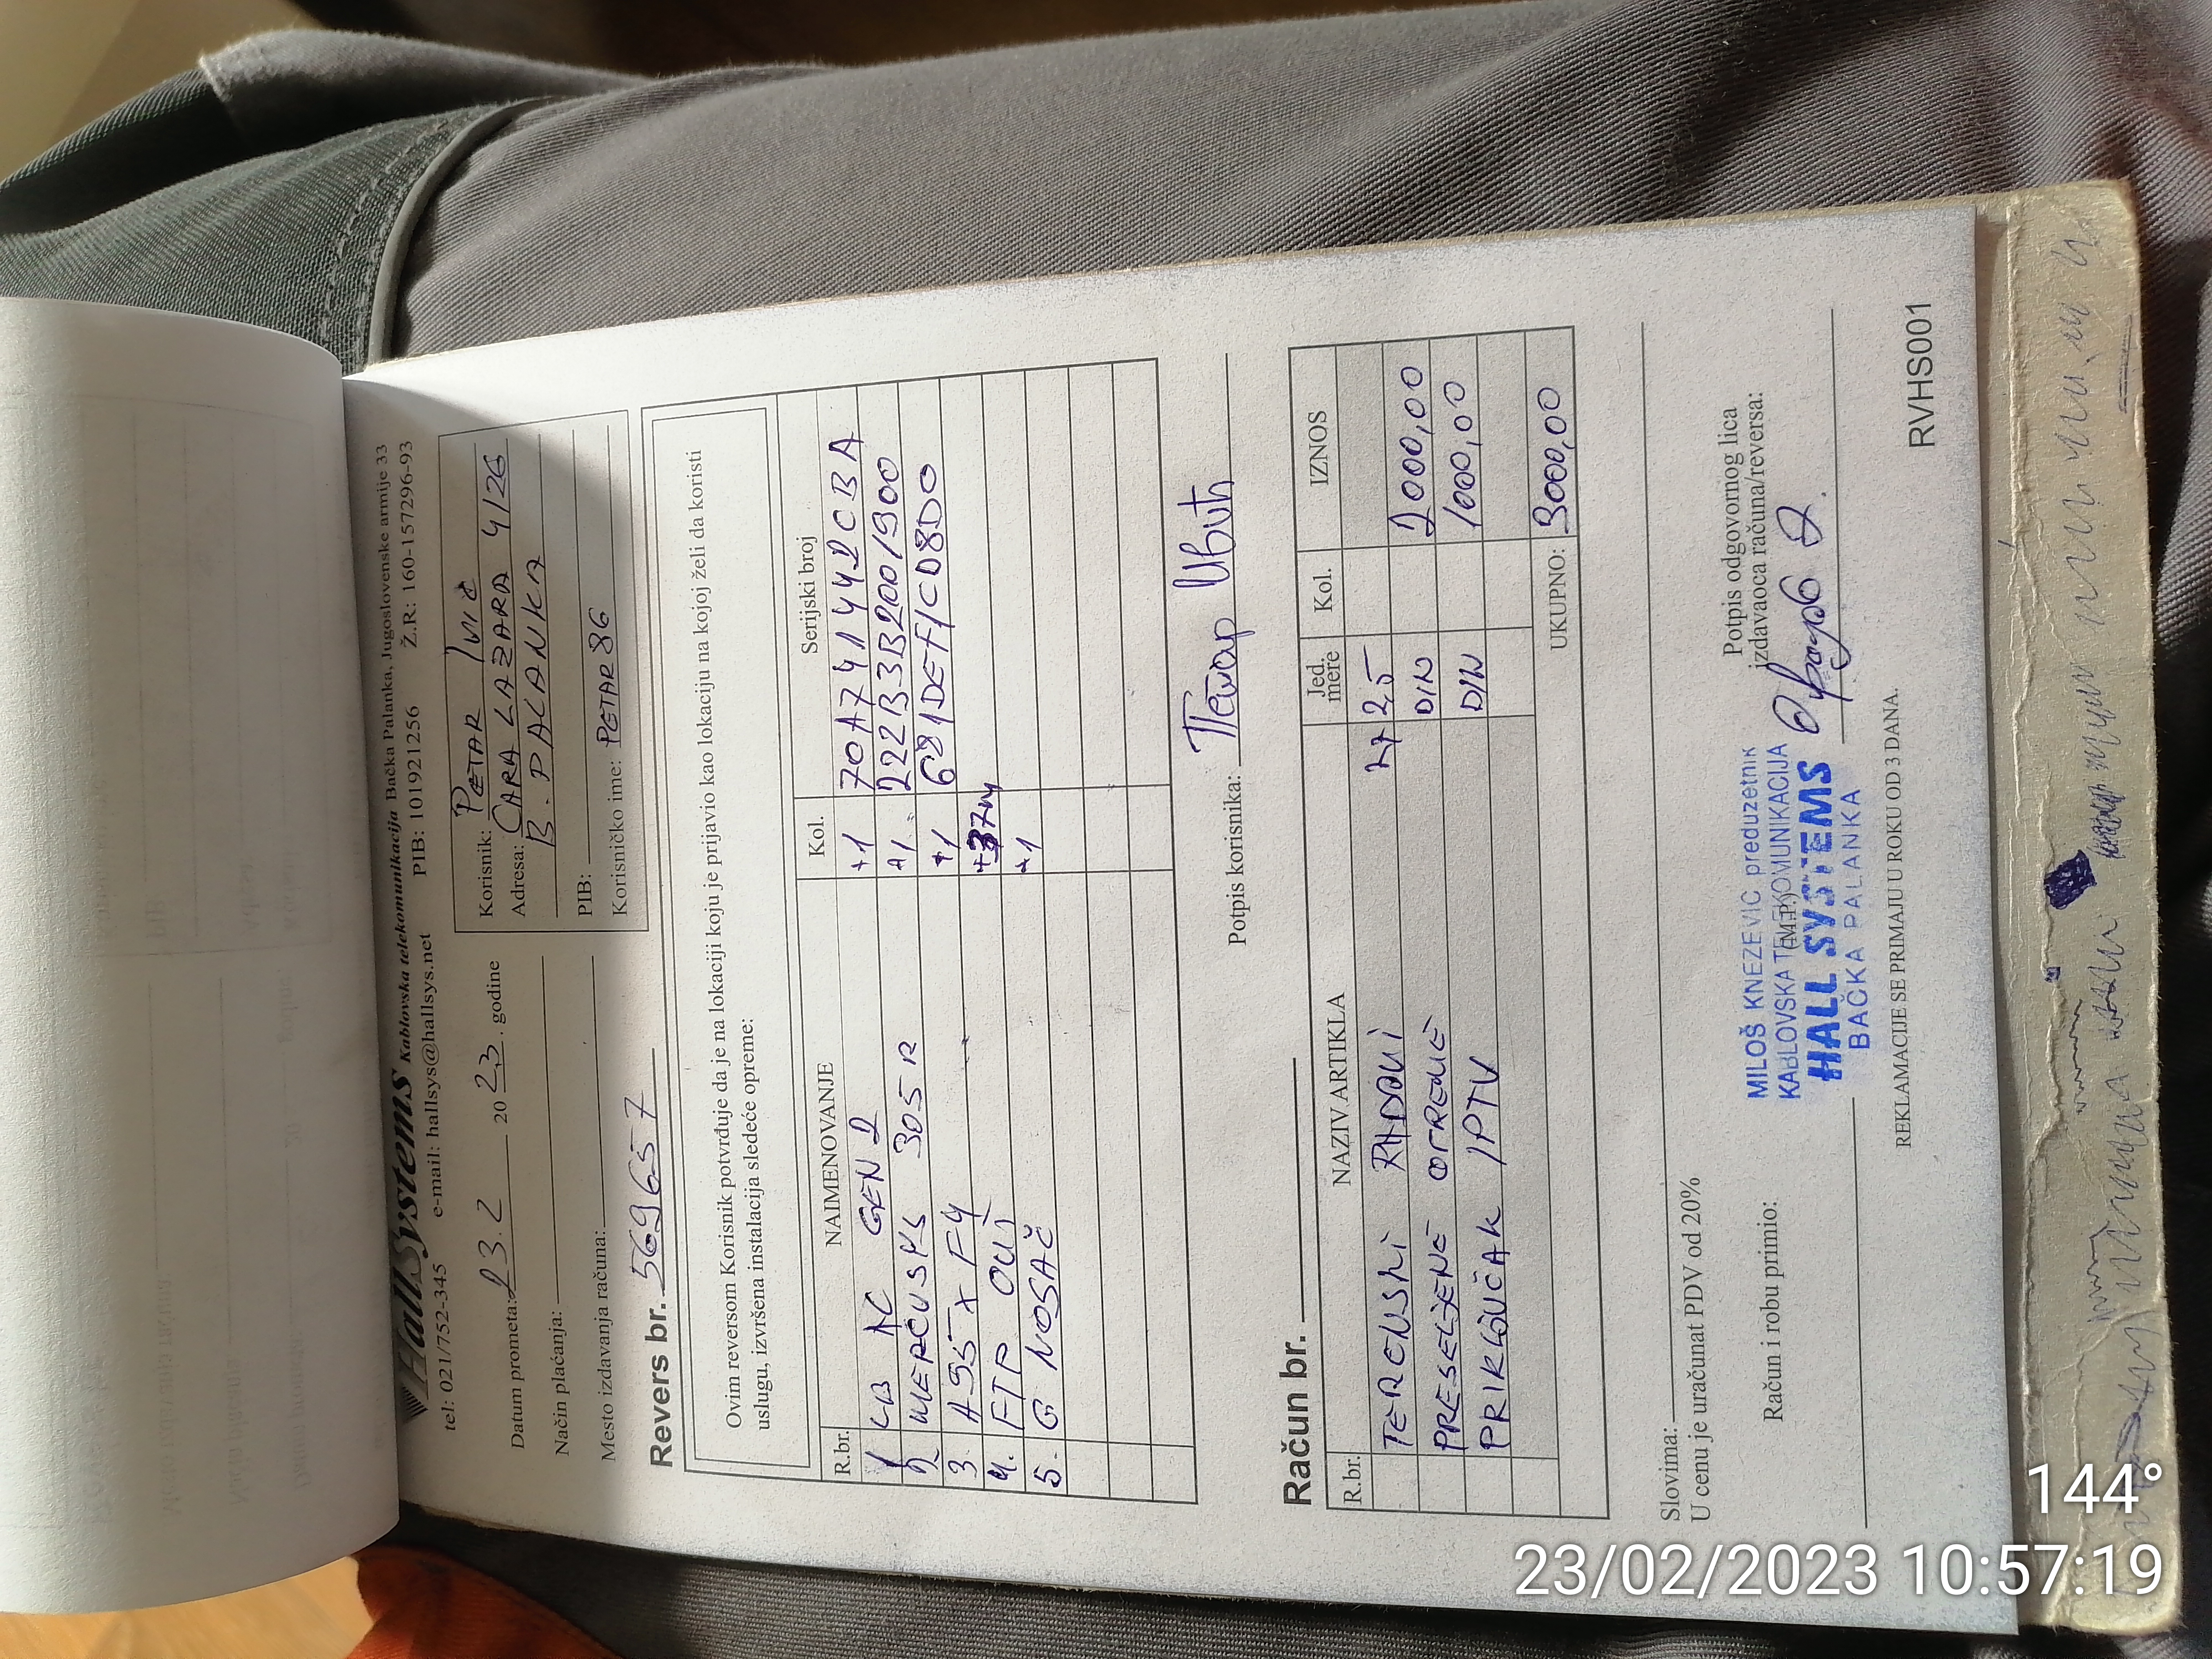 HallSystems Kablovska telekomunikacija Bačka Palanka, Jugoslovenske armije 33
tel: 021/752-345 e-mail: hallsys@hallsys.net PIB: 101921256 Ž.R: 160-157296-93
Datum prometa: 23.2 2023. godine
Način plaćanja:
Mesto izdavanja računa:
Korisnik: PETAR IVIĆ
Adresa: CARA LAZARA 4/26
B. PALANKA
PIB:
Korisničko ime: PETAR86
Revers br. 569657
Ovim reversom Korisnik potvrđuje da je na lokaciji koju je prijavio kao lokaciju na kojoj želi da koristi
uslugu, izvršena instalacija sledeće opreme:
R.br. NAIMENOVANJE Kol. Serijski broj
1 LB AC GEN 2 +1 70A741442CBA
2 MERCUSYS 305R +1 222B3B2001900
3. A95X F4 +1 681DEF1CD8D0
4. FTP +37m
5. G NOSAČ +1
Potpis korisnika: Петар Ивић
Račun br.
R.br. NAZIV ARTIKLA Jed. mere Kol. IZNOS
TERENSKI RADOVI 27 25
PRESELJENE OPREME DIN 2000,00
PRIKLJUČAK IPTV DIN 1000,00
UKUPNO: 3000,00
Slovima:
U cenu je uračunat PDV od 20%
Račun i robu primio:
(M.P.)
Potpis odgovornog lica
izdavaoca računa/reversa:
MILOŠ KNEZEVIC preduzetnik
KABLOVSKA TELEKOMUNIKACIJA
HALL SYSTEMS
BAČKA PALANKA
REKLAMACIJE SE PRIMAJU U ROKU OD 3 DANA.
RVHS001
144°
23/02/2023 10:57:19